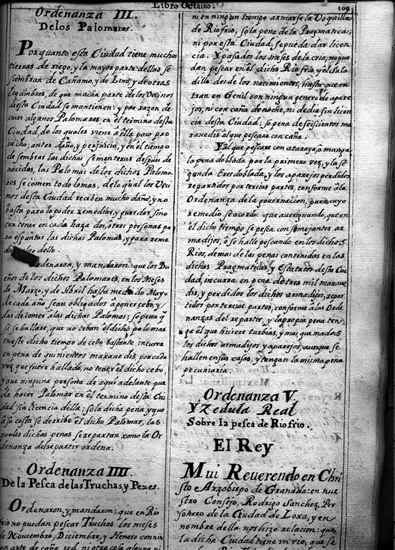 Libro Octavo.
109
Ordenanza III.
De los Palomares.
Por quanto esta Ciudad tiene muchas
tierras de riego, y la mayor parte dellas se
siembran de Cañamo, y de Lino, y de otras
legumbres de que mucha parte de los Vecinos
desta Ciudad se mantienen: y por razon de
aver algunos Palomares en el termino desta
Ciudad, de los quales viene a ella poco pro
vecho, antes daño, y perjuicio, y en el tiempo
de sembrar las dichas sementeras despues de
nacidas, las Palomas de los dichos Palomares
se comen todo lo mas, de lo qual los Vecinos
desta Ciudad reciben mucho daño, y no
basta para lo poder remediar, y guardar, sino
con tener en cada haza dos, o tres personas pa
ra espantar las dichas Palomas, y para reme
dio dello
Ordenaron, y mandaron: que los Due
ños de los dichos Palomares, en los Meses
de Marzo, y de Abril hasta mediado Mayo
de cada año sean obligados a poner cebo, y
de comer a las dichas Palomas, so pena
en su dicho palomar
este dicho tiempo de cebo bastante incurra
en pena de quinientos maravedis por cada
vez que fuere hallado, no tener el dicho cebo,
y que ninguna persona de aqui adelante pue
da hacer Palomar en el termino desta Ciu
dad sin licencia della: so la dicha pena, y que
a su costa se derribe el dicho Palomar, las
quales dichas penas se repartan como la Or
denanza del repartir ordena.
Ordenanza IIII.
De la Pesca de las Truchas, y Pezes.
Ordenaron, y mandaron: que en Rio
frio no puedan pescar Truchas los meses
de Noviembre, Deciembre, y Henero con nin
arte de caña, red, ni otra
ni en ningun tiempo armar se la Boquillas
de Riofrio, so la pena de la Pragmatica:
ni por esta Ciudad, se pueda dar licen
cia. Y pasados los meses de la cria, que pue
dan pescar en el dicho Riofrio, y el de la
dilla desde los nacimientos, hasta que en
tran en Genil con ningun genero de apare
jos, ni con caña de noche, ni de dia sin licen
cia desta Ciudad, so pena de seiscientos ma
ravedis al que pescare con caña.
Y al que pescare con atarraya, manga
la pena doblada por la primera vez, y la se
gunda tres doblada, y los aparejos perdidos
repartidos por tercias partes, conforme a la
Ordenanza de la provincion, para cuyo
remedio se acordó que averiguado, que en
el dicho tiempo se pesca con semejantes ar
madijos, ó se halle pescando en los dichos
Rios, demas de las penas contenidas en las
dichas Pragmaticas, y Estatutos desta Ciu
dad, incurra en pena de tres mil marave
dis, y perdidos los dichos armadijos, repar
tidos por terceras partes, conforme a la Orde
nanza del repartir, y la propia pena ten
ga el que hiciere turbias, y no que maden
los dichos armadijos y aparejos, aunque se
hallen en sus casas, y tengan la misma pena
pecuniaria.
Ordenanza V.
Y Zedula Real
Sobre la pesca de Riofrio.
El Rey
Mui Reverendo en Chri
sto Arzobispo de Granada: en nue
stro Consejo, Rodrigo Sanchez, Per
sonero de la Ciudad de Loxa, y en
nombre della nos hizo relacion: que
la dicha Ciudad tiene un rio, que se